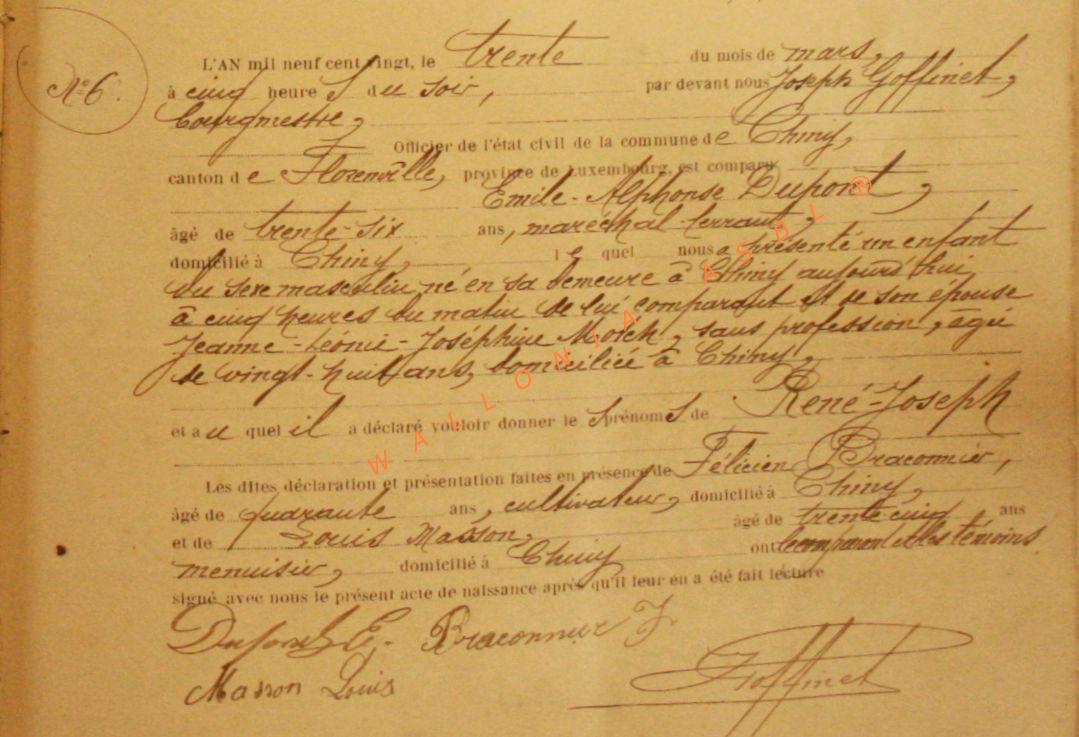 L'AN mil neuf cent vingt, le trente du mois de mars,
N° 6.
à cinq heure S du soir, par devant nous Joseph Goffinet,
bourgmestre,
Officier de l'état civil de la commune de Chiny,
canton de Florenville, province de Luxembourg, est comparu
Emile-Alphonse Dupont,
âgé de trente-six ans, maréchal-ferrant,
domicilié à Chiny, le quel nous a présenté un enfant
du sexe masculin né en sa demeure à Chiny aujourd'hui
à cinq heures du matin de lui comparant et de son épouse
Jeanne-Léonie-Joséphine Morck, sans profession, âgée
de vingt-huit ans, domiciliée à Chiny,
et au quel il a déclaré vouloir donner le S prénom S de René-Joseph
Les dites déclaration et présentation faites en présence de Félicien Braconnier,
âgé de quarante ans, cultivateur, domicilié à Chiny,
et de Louis Masson, âgé de trente-cinq ans
menuisier, domicilié à Chiny ont le comparant et les témoins
signé avec nous le présent acte de naissance après qu'il leur en a été fait lecture
Dupont E. Braconnier F.
Masson Louis Goffinet
WALLONIA ASBL ®